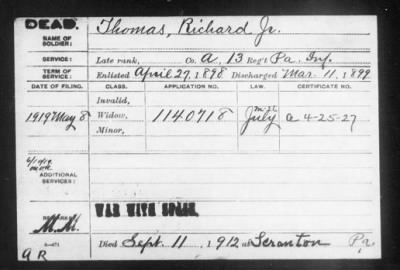 DEAD.
Thomas, Richard Jr.
NAME OF
SOLDIER:
SERVICE:
Late rank, Co. A, 13 Reg't Pa. Inf.
TERM OF
SERVICE:
Enlisted April 27, 1898 Discharged Mar. 11, 1899
DATE OF FILING. CLASS. APPLICATION NO. LAW. CERTIFICATE NO.
Invalid,
1919 May 8 Widow, 1140718 July a 4-25-27
Minor,
ADDITIONAL
SERVICES:
WAR WITH SPAIN
Died Sept. 11, 1912 at Scranton Pa.